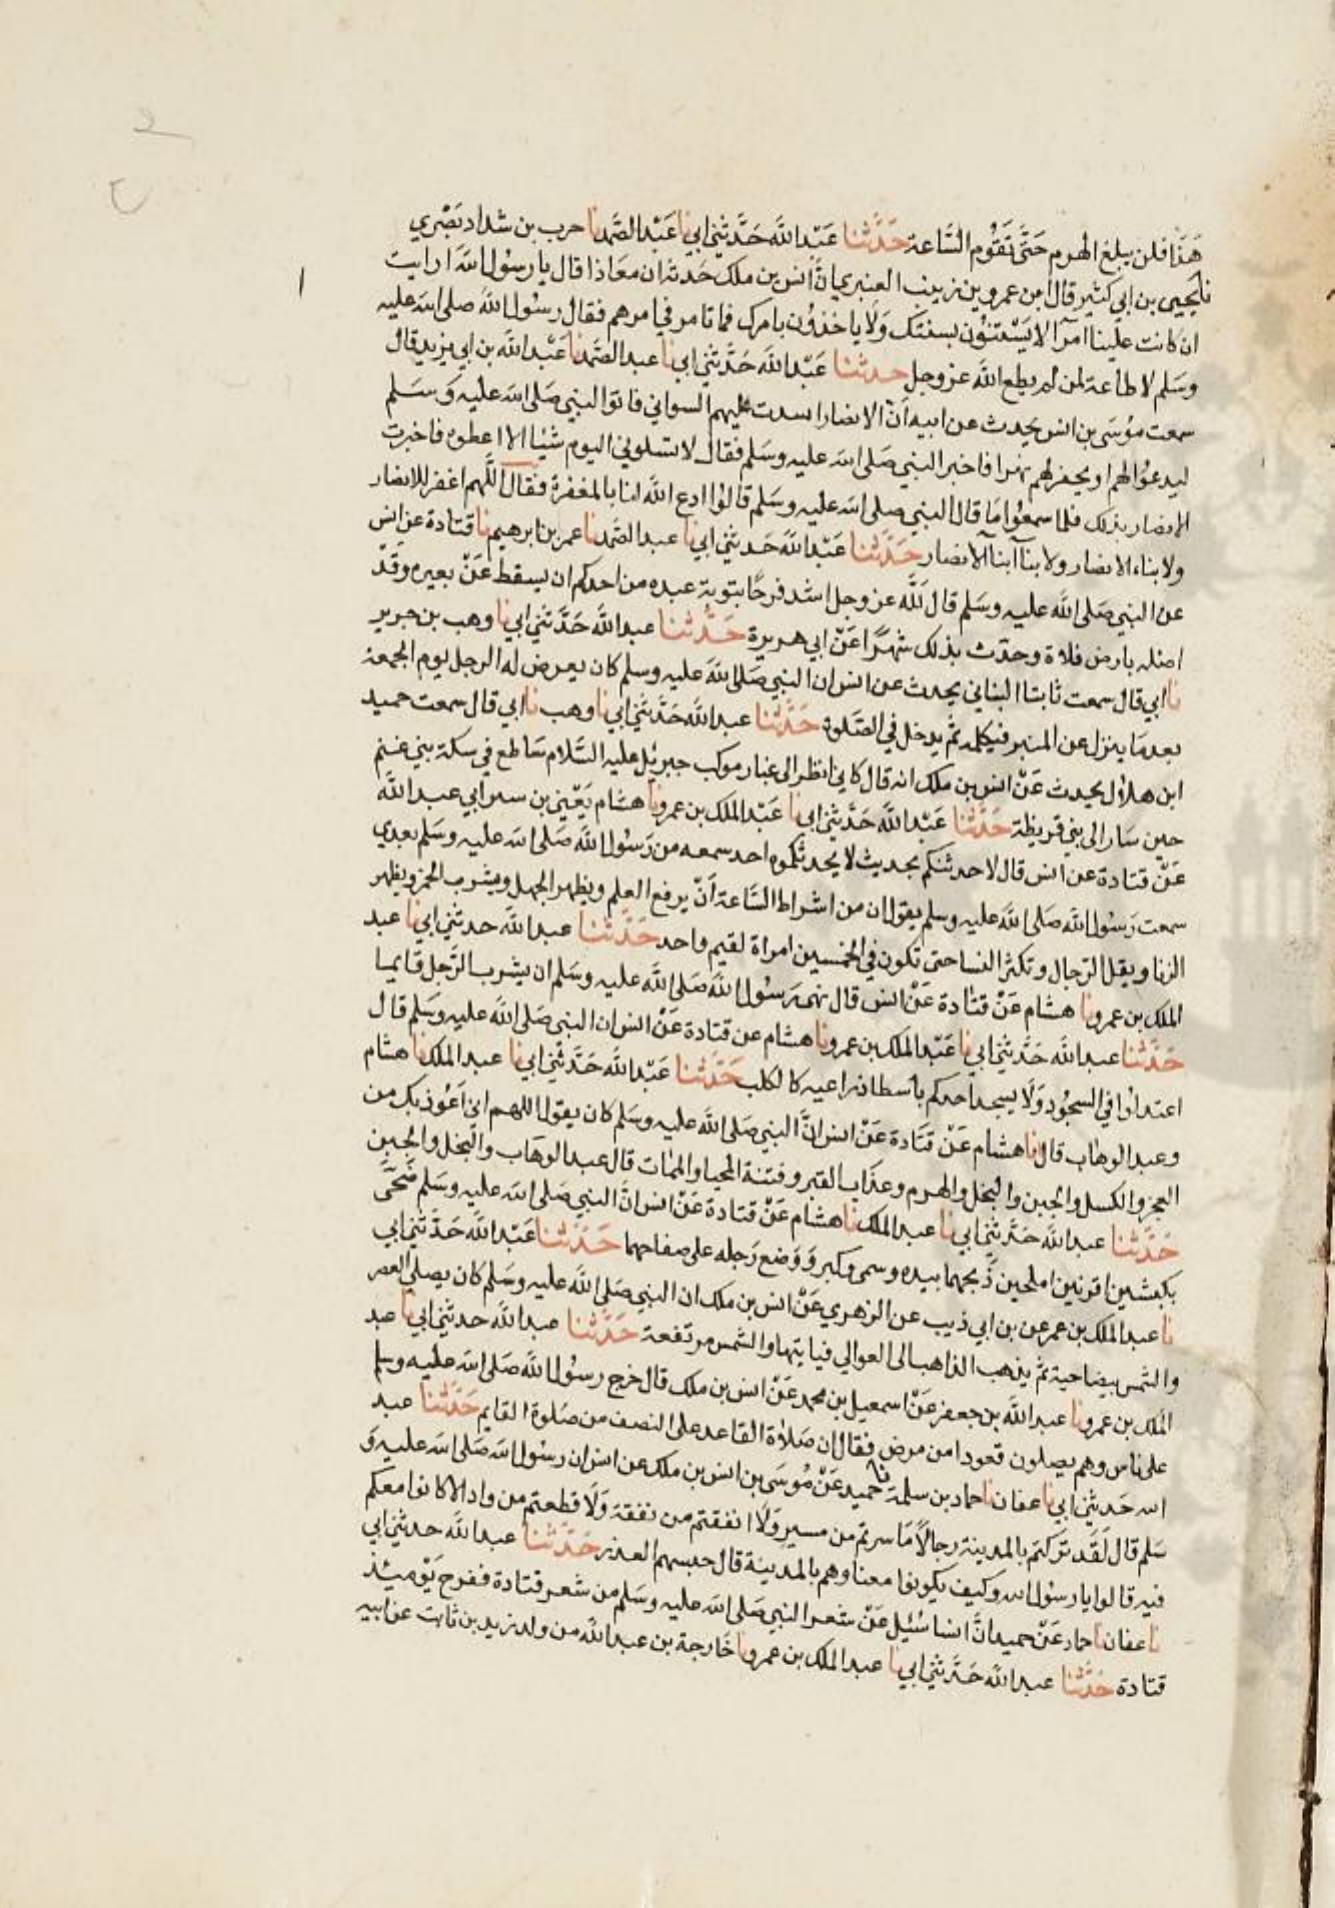 هذا فلن يبلغ الهرم حتى تقوم الساعة حدثنا عبد الله حدثني ابي نا عبد الصمد نا حرب بن شداد بصري
نا يحيى بن ابي كثير قال ابن عمرو بن زينب العنبري ان انس بن ملك حدثه ان معاذا قال يا رسول الله ارايت
ان كانت علينا امرآ الا يستنون بسنتك ولا ياخذون بامرك فما تامر في امرهم فقال رسول الله صلى الله عليه
وسلم لا طاعة لمن لم يطع الله عز وجل حدثنا عبد الله حدثني ابي نا عبد الصمد نا عبد الله بن ابي يزيد قال
سمعت موسى بن انس يحدث عن ابيه ان الانصار اسدت عليهم السواني فاتوا النبي صلى الله عليه وسلم
ليدعوا لهم او يحفر لهم نهرا فاخبر النبي صلى الله عليه وسلم فقال لا تسلوني اليوم شئيا الا اعطوه فاخبرت
الانصار بذلك فلما سمعوا ما قال النبي صلى الله عليه وسلم قالوا ادع الله لنا بالمغفرة فقال اللهم اغفر للانصار
ولابناء الانصار ولابنآ ابنآ الانصار حدثنا عبد الله حدثني ابي نا عبد الصمد نا عمر بن ابرهيم نا قتادة عن انس
عن النبي صلى الله عليه وسلم قال لله عز وجل اشد فرحا بتوبة عبده من احدكم ان يسقط عن بعيره وقد
اضله بارض فلاة وحدث بذلك شهرا عن ابي هريرة حدثنا عبد الله حدثني ابي نا وهب بن جرير
نا ابي قال سمعت ثابتا البناني يحدث عن انس ان النبي صلى الله عليه وسلم كان يعرض له الرجل يوم الجمعة
بعد ما ينزل عن المنبر فيكلمه ثم يدخل في الصلوه حدثنا عبد الله حدثني ابي نا وهب نا ابي قال سمعت حميد
ابن هلال يحدث عن انس بن ملك انه قال كاني انظر الى غبار موكب جبريل عليه السلام ساطع في سكة بني غنم
حين سار الى بني قريظة حدثنا عبد الله حدثني ابي نا عبد الملك بن عمرو نا هشام يعني بن سنبر ابي عبد الله
عن قتادة عن انس قال لاحدثنكم بحديث لا يحدثكموه احد سمعه من رسول الله صلى الله عليه وسلم بعدي
سمعت رسول الله صلى الله عليه وسلم يقول ان من اشراط الساعة ان يرفع العلم ويظهر الجهل ويشرب الخمر ويظهر
الزنا ويقل الرجال وتكثر النسا حتى تكون في الخمسين امراة لقيم واحد حدثنا عبد الله حدثني ابي نا عبد
الملك بن عمرو نا هشام عن قتادة عن انس قال نهى رسول الله صلى الله عليه وسلم ان يشرب الرجل قايما
حدثنا عبد الله حدثني ابي نا عبد الملك بن عمرو نا هشام عن قتادة عن انس ان النبي صلى الله عليه وسلم قال
اعتدلوا في السجود ولا يسجد احدكم باسطا ذراعيه كالكلب حدثنا عبد الله حدثني ابي نا عبد الملك نا هشام
وعبد الوهاب قال نا هشام عن قتادة عن انس ان النبي صلى الله عليه وسلم كان يقول اللهم اني اعوذ بك من
العجز والكسل والجبن والبخل والهرم وعذاب القبر وفتنة المحيا والممات قال عبد الوهاب والبخل والجبن
حدثنا عبد الله حدثني ابي نا عبد الملك نا هشام عن قتادة عن انس ان النبي صلى الله عليه وسلم ضحى
بكبشين اقرنين املحين ذبحهما بيده وسمى وكبر ووضع رجله على صفاحهما حدثنا عبد الله حدثني ابي
نا عبد الملك بن عمر عن بن ابي ذيب عن الزهري عن انس بن ملك ان النبي صلى الله عليه وسلم كان يصلي العصر
والشمس بيضا حية ثم يذهب الذاهب الى العوالي فياتيها والشمس مرتفعة حدثنا عبد الله حدثني ابي نا عبد
الملك بن عمرو نا عبد الله بن جعفر عن اسمعيل بن محمد عن انس بن ملك قال خرج رسول الله صلى الله عليه وسلم
على ناس وهم يصلون قعودا من مرض فقال ان صلاة القاعد على النصف من صلوة القايم حدثنا عبد
الله حدثني ابي نا عفان نا حماد بن سلمة نا حميد عن موسى بن انس بن ملك عن انس ان رسول الله صلى الله عليه و
سلم قال لقد تركتم بالمدينة رجالا ما سرتم من مسير ولا انفقتم من نفقة ولا قطعتم من واد الا كانوا معكم
فيه قالوا يا رسول الله وكيف يكونوا معنا وهم بالمدينة قال حبسهم العذر حدثنا عبد الله حدثني ابي
نا عفان نا حماد عن حميد ان انسا سئيل عن شعر النبي صلى الله عليه وسلم من شعر قتادة ففرح يوميذ
قتادة حدثنا عبد الله حدثني ابي نا عبد الملك بن عمرو نا خارجة بن عبد الله من ولد زيد بن ثابت عن ابيه